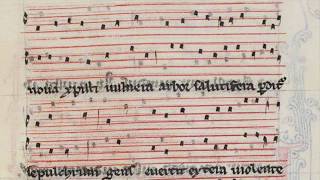 noua xpisti uulnera arbor salutifera pdit᷑
sepulchrum gens euertit extera uiolente